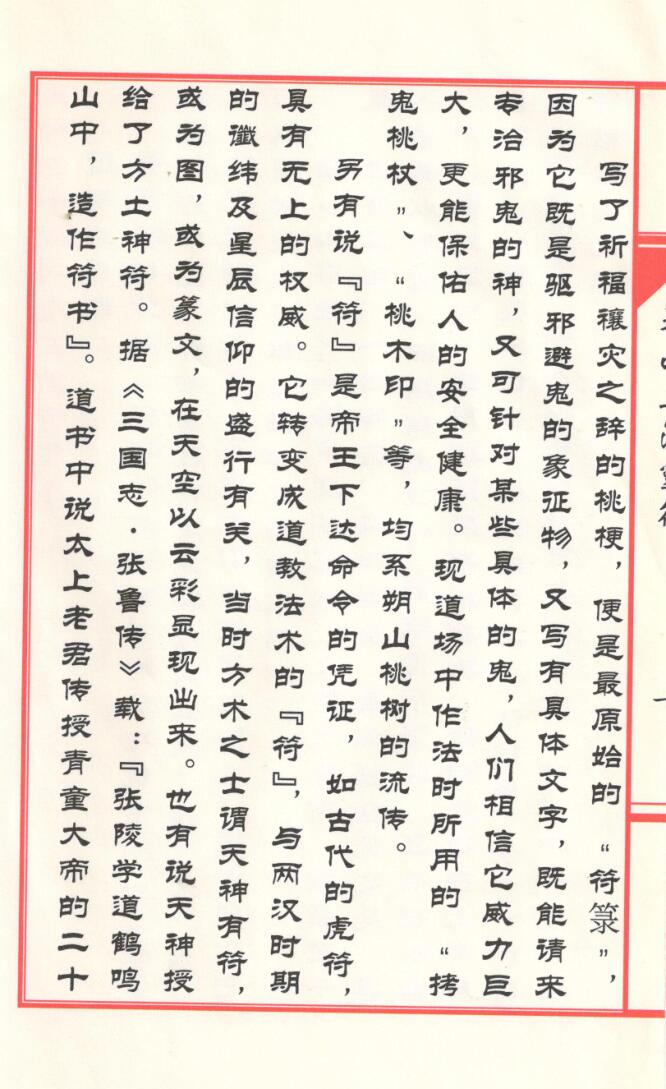 写了祈福禳灾之辞的桃梗，便是最原始的“符箓”，
因为它既是驱邪避鬼的象征物，又写有具体文字，既能请来
专治邪鬼的神，又可针对某些具体的鬼，人们相信它威力巨
大，更能保佑人的安全健康。现道场中作法时所用的“拷
鬼桃杖”、“桃木印”等，均系朔山桃树的流传。
另有说『符』是帝王下达命令的凭证，如古代的虎符，
具有无上的权威。它转变成道教法术的『符』，与两汉时期
的谶纬及星辰信仰的盛行有关，当时方术之士谓天神有符，
或为图，或为篆文，在天空以云彩显现出来。也有说天神授
给了方士神符。据《三国志·张鲁传》载：『张陵学道鹤鸣
山中，造作符书』。道书中说太上老君传授青童大帝的二十